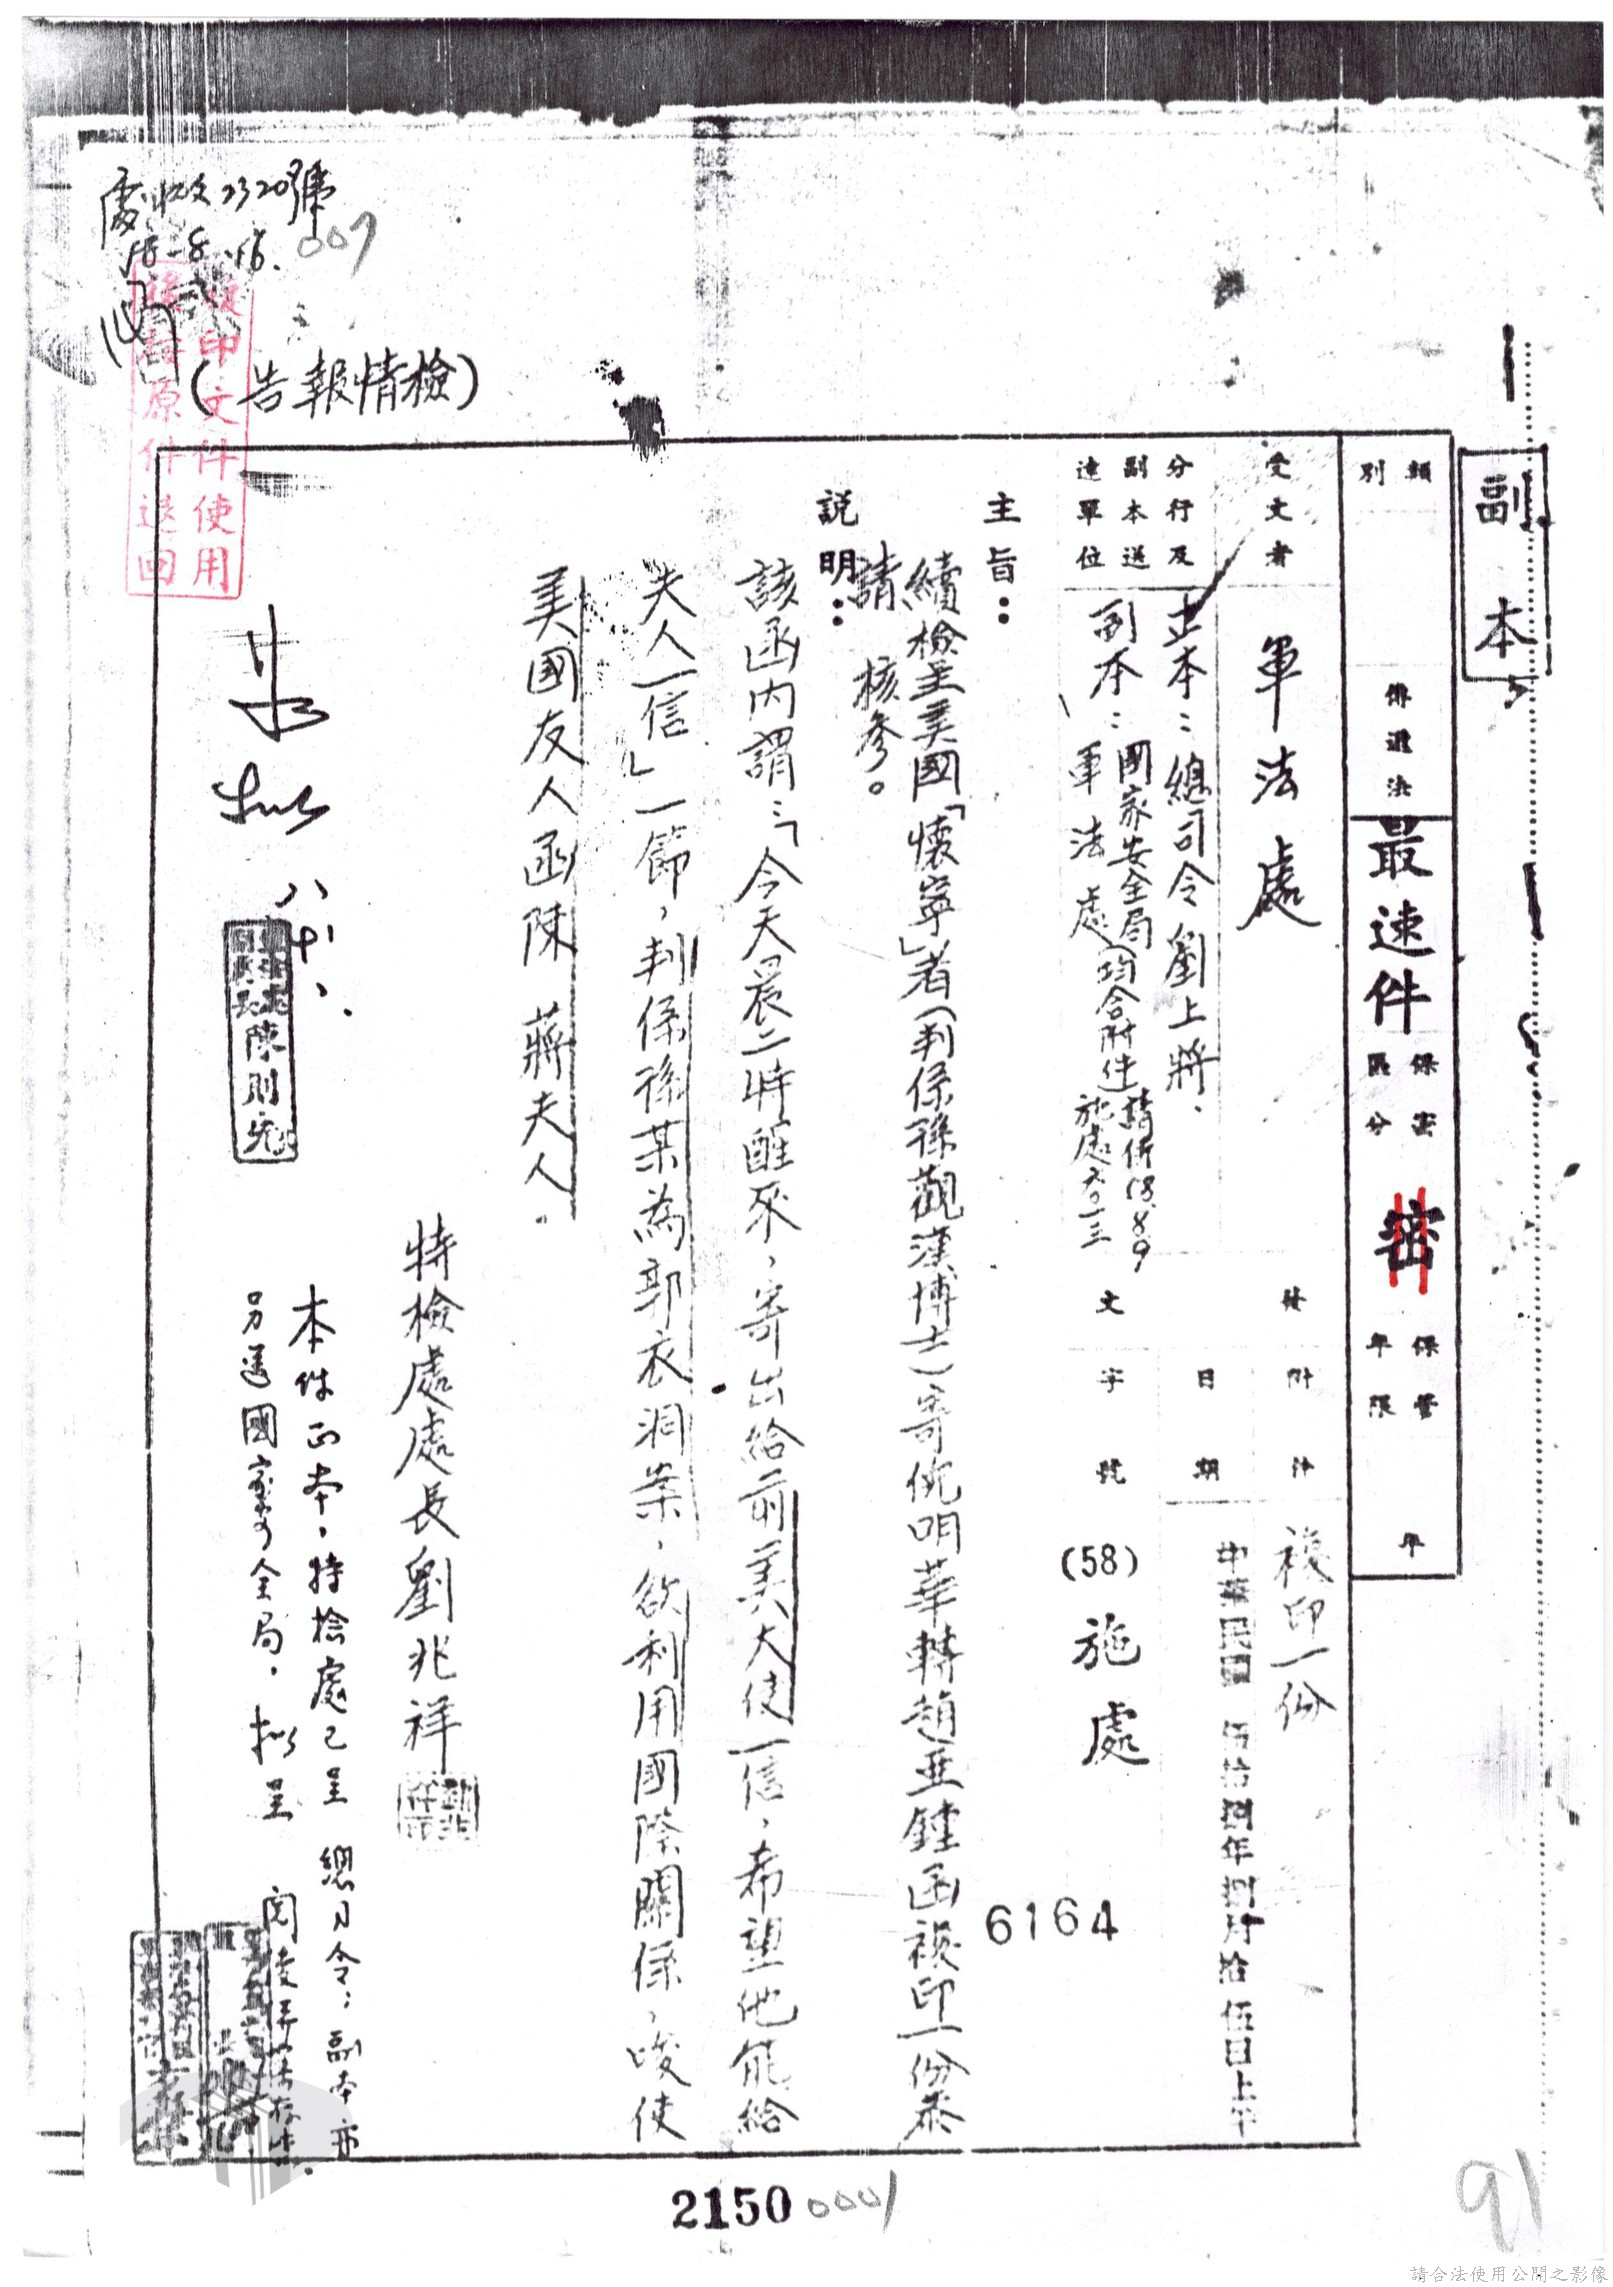 副本
類別
傳遞法
最速件
保密區分
密
保管年限
年
受文者
軍法處
分行及副本送達單位
正本：總司令劉上將、
副本：國家安全局
軍法處(均含附件)
請併58.8.9
施處六〇一三
發文
附件
複印一份
日期
中華民國 伍拾捌年捌月拾伍日上午
字號
(58) 施處
6164
主旨：
續檢呈美國「懷寧」者(判係孫觀漢博士)寄倪明華轉趙亜鍾函複印一份恭
請 核參。
說明：
該函内謂：「今天晨二時醒來，寄出給前美大使一信，希望他能給
夫人一信」一節，判係孫某為郭衣洞案，欲利用國際關係，唆使
美國友人函陳 蔣夫人。
特檢處處長劉兆祥
本件正本，特檢處已呈 總司令；副本亦
另送國家安全局，擬呈 閱後
陳則先
(檢情報告)
處收文2320號
58-8-16.
007
複印文件使用
後請原件退回
2150
0001
91
請合法使用公開之影像